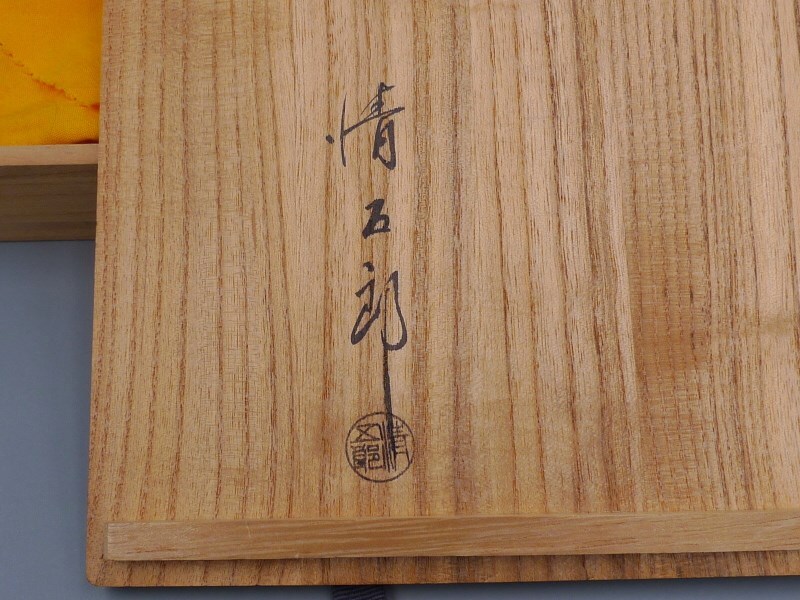 清五郎
清五郎